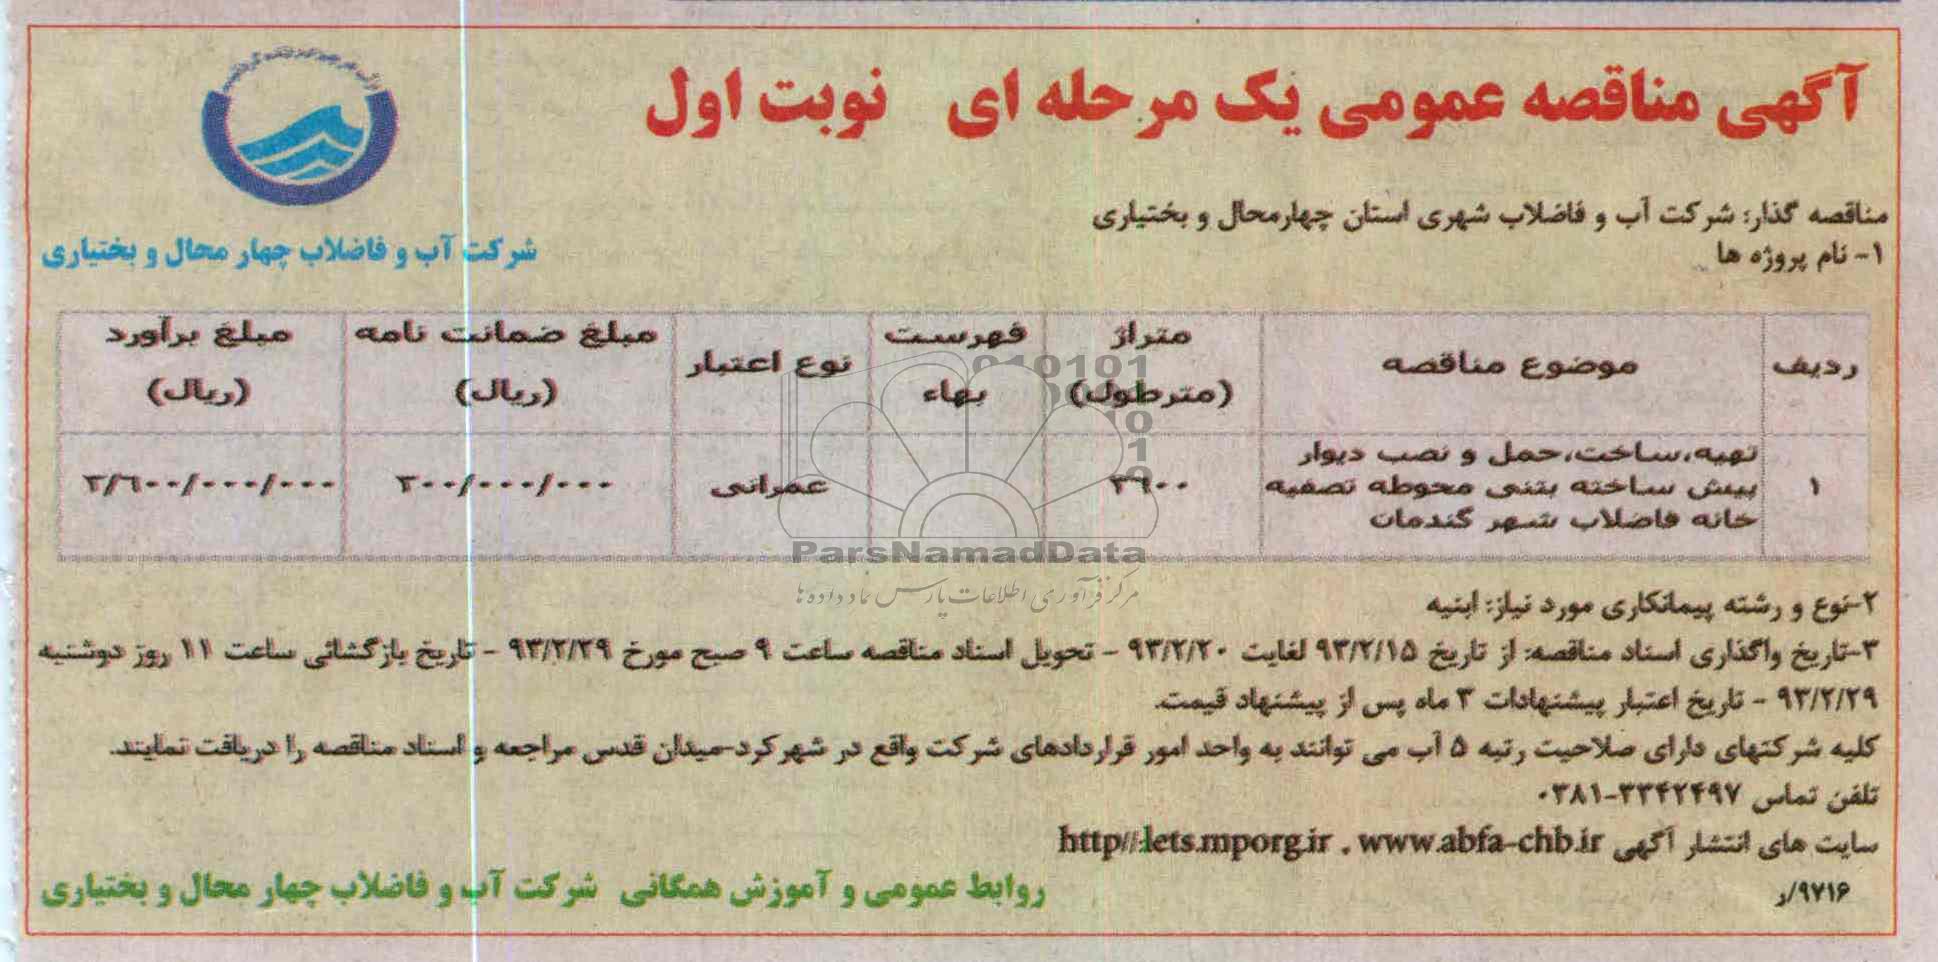 آگهی مناقصه عمومی یک مرحله ای نوبت اول
شرکت آب و فاضلاب چهار محال و بختیاری
مناقصه گذار: شرکت آب و فاضلاب شهری استان چهارمحال و بختیاری
۱- نام پروژه ها
ردیف موضوع مناقصه متراژ (مترطول) فهرست بهاء نوع اعتبار مبلغ ضمانت نامه (ریال) مبلغ برآورد (ریال)
۱ تهیه،ساخت،حمل و نصب دیوار
پیش ساخته بتنی محوطه تصفیه عمرانی
خانه فاضلاب شهر گندمان
ParsNamadData
مرکز فرآوری اطلاعات پارس نماد داده ها
۲-نوع و رشته پیمانکاری مورد نیاز: ابنیه
۳-تاریخ واگذاری اسناد مناقصه: از تاریخ ۹۳/۲/۱۵ لغایت ۹۳/۲/۲۰ - تحویل اسناد مناقصه ساعت ۹ صبح مورخ ۹۳/۲/۲۹ - تاریخ بازگشائی ساعت ۱۱ روز دوشنبه
۹۳/۲/۲۹ - تاریخ اعتبار پیشنهادات ۳ ماه پس از پیشنهاد قیمت.
کلیه شرکتهای دارای صلاحیت رتبه ۵ آب می توانند به واحد امور قراردادهای شرکت واقع در شهرکرد-میدان قدس مراجعه و اسناد مناقصه را دریافت نمایند.
تلفن تماس ۳۳۴۲۴۹۷-۰۳۸۱
سایت های انتشار آگهی http//:iets.mporg.ir . www.abfa-chb.ir
۹۷۱۶/ر
روابط عمومی و آموزش همگانی شرکت آب و فاضلاب چهار محال و بختیاری